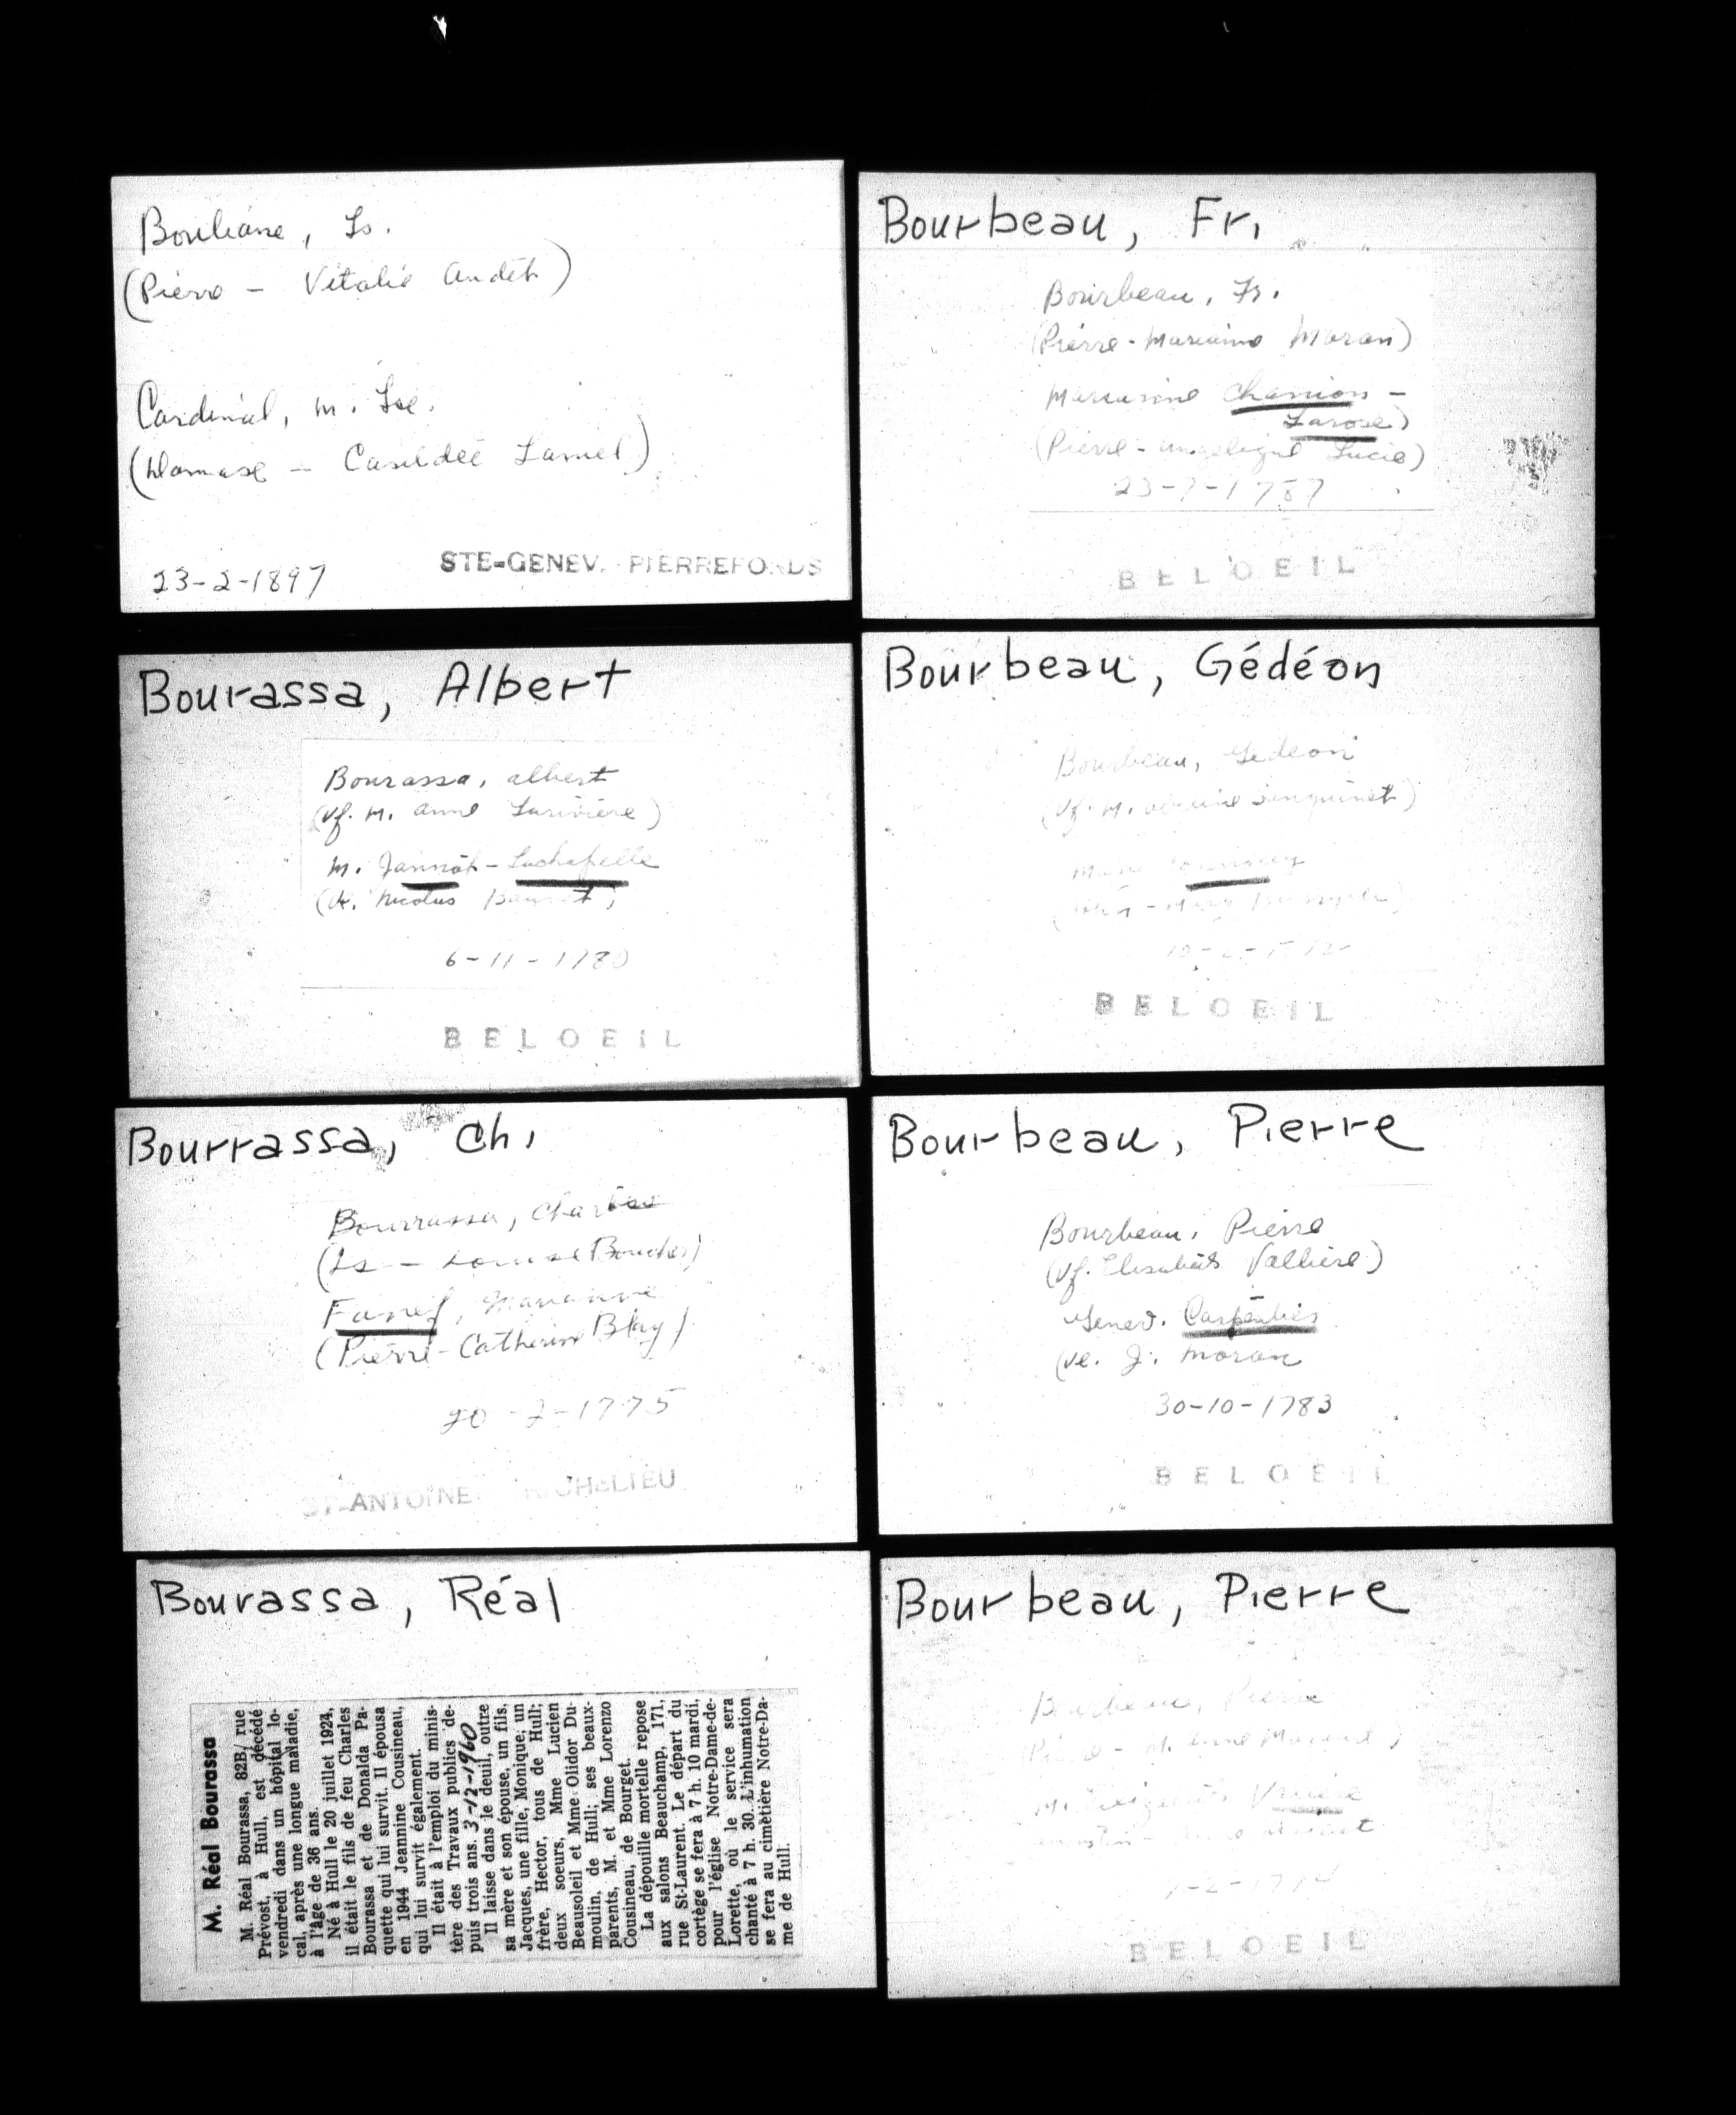 Bouliane, Ls.
(Pierre - Vitalie Audet)
Cardinal, m. Lse.
(Damase - Casildée Lamel)
23-2-1897
STE-GENEV. PIERREFONDS
Bourassa, Albert
Bourassa, albert
(Vf. M. anne Larivière)
M. Jannot-Lachapelle
(V. Nicolas
6-11-1780
BELOEIL
Bourrassa, Ch.
Bourrassa, Charles
(Ls - Louise Boucher)
Fanef, Marianne
(Pierre-Catherine Blay)
20-2-1775
ST-ANTOINE RICHELIEU
Bourassa, Réal
M. Réal Bourassa
M. Réal Bourassa, 82B, rue
Prévost, à Hull, est décédé
vendredi dans un hôpital lo-
cal, après une longue maladie,
à l'âge de 36 ans.
Né à Hull le 20 juillet 1924,
il était le fils de feu Charles
Bourassa et de Donalda Pa-
quette qui lui survit. Il épousa
en 1944 Jeannine Cousineau,
qui lui survit également.
Il était à l'emploi du minis-
tère des Travaux publics de-
puis trois ans. 3-12-1960
Il laisse dans le deuil, outre
sa mère et son épouse, un fils,
Jacques, une fille, Monique; un
frère, Hector, tous de Hull;
deux soeurs, Mme Lucien
Beausoleil et Mme Olidor Du-
moulin, de Hull; ses beaux-
parents, M. et Mme Lorenzo
Cousineau, de Bourget.
La dépouille mortelle repose
aux salons Beauchamp, 171,
rue St-Laurent. Le départ du
cortège se fera à 7 h. 10 mardi,
pour l'église Notre-Dame-de-
Lorette, où le service sera
chanté à 7 h. 30. L'inhumation
se fera au cimetière Notre-Da-
me de Hull.
Bourbeau, Fr.
Bourbeau, Fr.
(Pierre - Marianne Moran)
Marianne Charron -
Larose)
(Pierre - angelique Lucie)
23-7-1787
BELOEIL
Bourbeau, Gédéon
Bourbeau, Gedeon
BELOEIL
Bourbeau, Pierre
Bourbeau, Pierre
(Vf. Elisabeth Vallière)
Genev. Carpentier
(Ve. J. Moran
30-10-1783
BELOEIL
Bourbeau, Pierre
Bourbeau, Pierre
BELOEIL